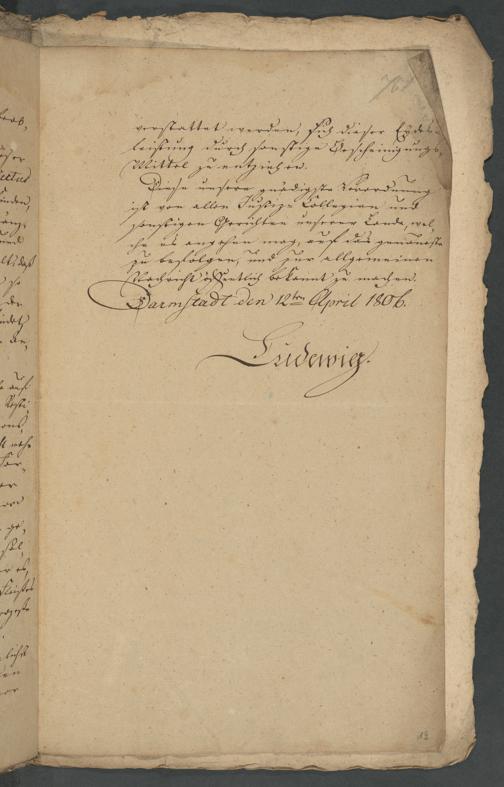 verstattet werden, sich dieser Eydes-
leistung durch sonstige Bescheinigungs-
Mittel zu entziehen.
Diese unsere gnädigste Verordnung
ist von allen Justiz-Collegien und
sonstigen Gerichten unserer Lande, wel-
che es angehen mag, auf das genaueste
zu befolgen, und zur allgemeinen
Nachricht öffentlich bekannt zu machen.
Darmstadt den 12ten April 1806.
Ludewig.